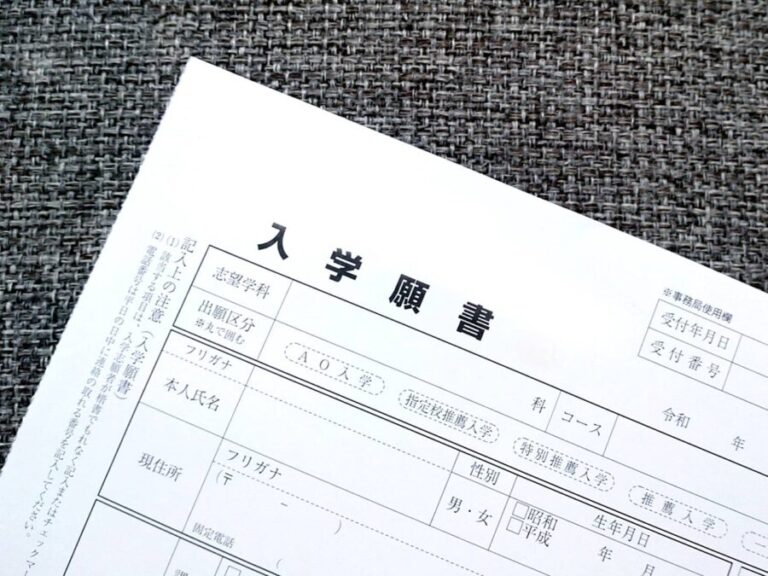 入学願書
※事務局使用欄
受付年月日
受付番号
志望学科
科
コース
令和 年
出願区分
※丸で囲む
AO入学
指定校推薦入学
特別推薦入学
推薦入学
フリガナ
本人氏名
性別
男・女
生年月日
昭和
平成
年 月
現住所
フリガナ
(〒 - )
固定電話
(
記入上の注意(入学願書)
(1) 該当する項目は、入学志願者が楷書でもれなく記入またはチェックマー
(2) 電話番号は平日の日中に連絡の取れる番号を記入してください。